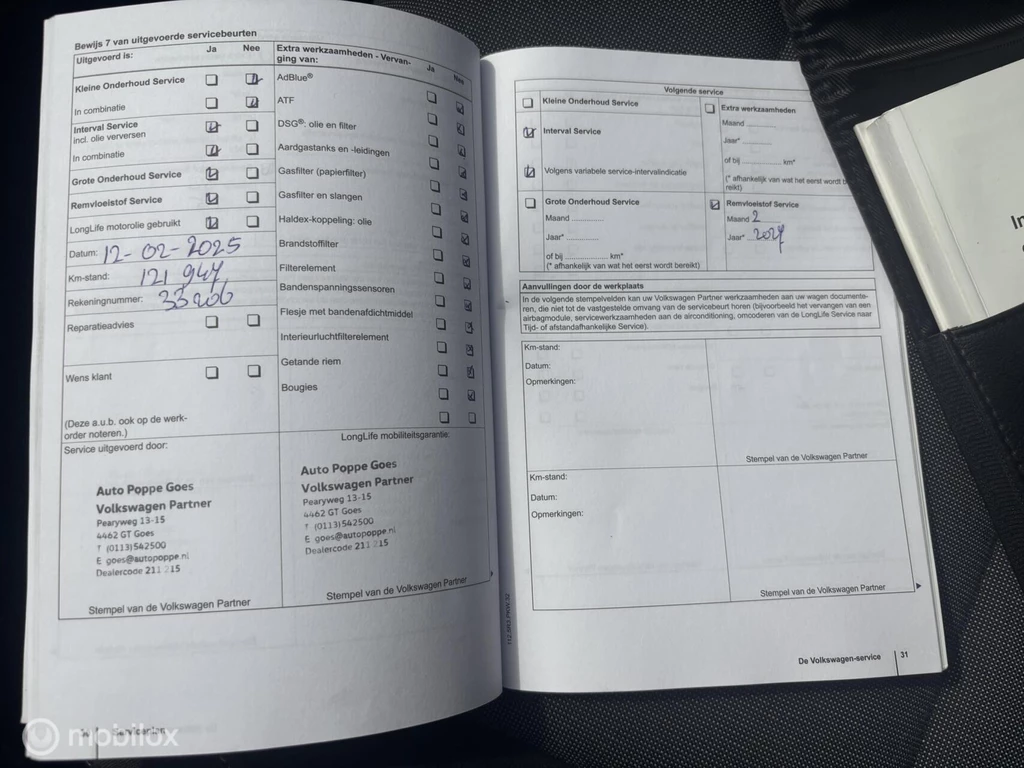 Bewijs 7 van uitgevoerde servicebeurten
Uitgevoerd is:
Ja
Nee
Kleine Onderhoud Service
In combinatie
Interval Service
incl. olie verversen
In combinatie
Grote Onderhoud Service
Remvloeistof Service
LongLife motorolie gebruikt
Datum: 12-02-2025
Km-stand: 121 947
Rekeningnummer: 33206
Reparatieadvies
Wens klant
(Deze a.u.b. ook op de werk-
order noteren.)
Extra werkzaamheden - Vervan-
ging van:
Ja
Nee
AdBlue®
ATF
DSG®: olie en filter
Aardgastanks en -leidingen
Gasfilter (papierfilter)
Gasfilter en slangen
Haldex-koppeling: olie
Brandstoffilter
Filterelement
Bandenspanningssensoren
Flesje met bandenafdichtmiddel
Interieurluchtfilterelement
Getande riem
Bougies
Service uitgevoerd door:
Auto Poppe Goes
Volkswagen Partner
Pearyweg 13-15
4462 GT Goes
T (0113)542500
E goes@autopoppe.nl
Dealercode 211 215
Stempel van de Volkswagen Partner
LongLife mobiliteitsgarantie:
Auto Poppe Goes
Volkswagen Partner
Pearyweg 13-15
4462 GT Goes
T (0113)542500
E goes@autopoppe.nl
Dealercode 211 215
Stempel van de Volkswagen Partner
Volgende service
Kleine Onderhoud Service
Interval Service
Volgens variabele service-intervalindicatie
Grote Onderhoud Service
Maand ............
Jaar* ............
of bij ............ km*
(* afhankelijk van wat het eerst wordt bereikt)
Extra werkzaamheden
Maand ........
Jaar* ........
of bij ............ km*
(* afhankelijk van wat het eerst wordt b
reikt)
Remvloeistof Service
Maand 2
Jaar* 2027
Aanvullingen door de werkplaats
In de volgende stempelvelden kan uw Volkswagen Partner werkzaamheden aan uw wagen documente-
ren, die niet tot de vastgestelde omvang van de servicebeurt horen (bijvoorbeeld het vervangen van een
airbagmodule, servicewerkzaamheden aan de airconditioning, omcoderen van de LongLife Service naar
Tijd- of afstandafhankelijke Service).
Km-stand:
Datum:
Opmerkingen:
Stempel van de Volkswagen Partner
Km-stand:
Datum:
Opmerkingen:
Stempel van de Volkswagen Partner
De Volkswagen-service
31
In
mobilox